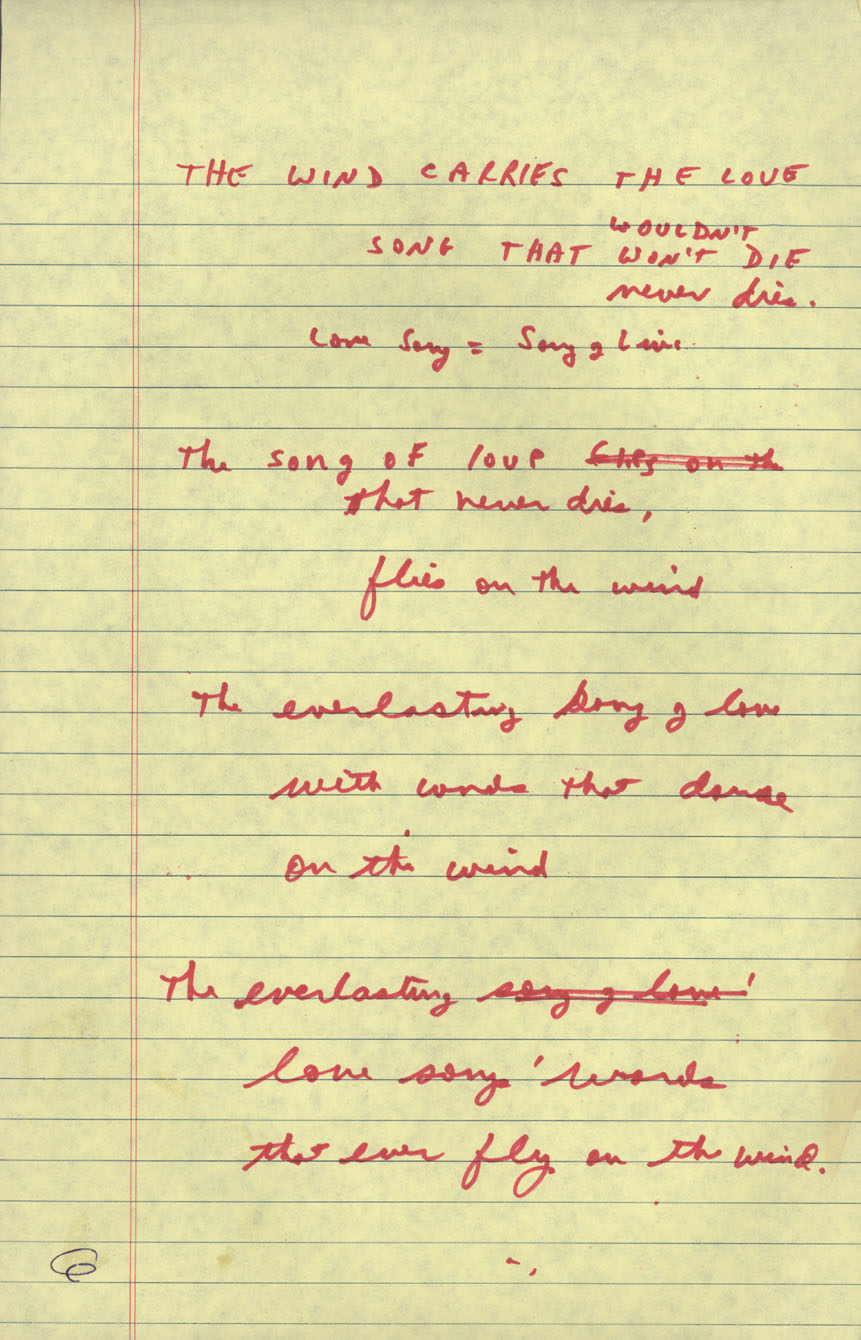 THE WIND CARRIES THE LOVE
WOULDN'T
SONG THAT WON'T DIE
never dies.
Love Song = Song of Love
The song of love flies on the
that never dies,
flies on the wind
The everlasting Song of love
with words that dance
on the wind
The everlasting song of love'
love song' words
that ever fly on the wind.
6